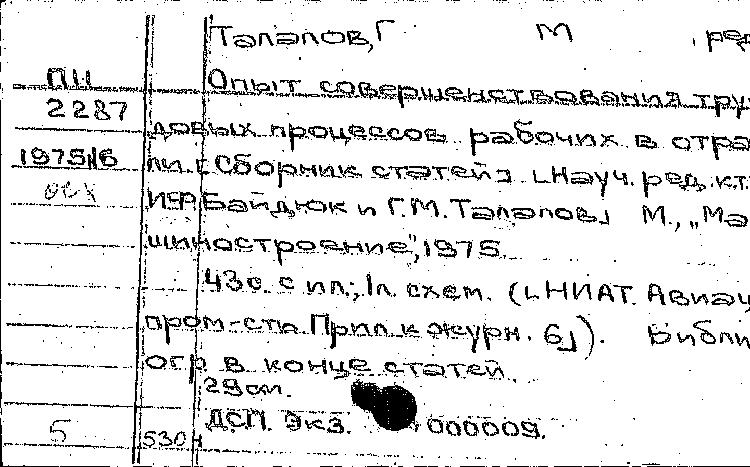 Талапов, Г М , ред
ПИ Опыт совершенствования тру
2287 довых процессов рабочих в отра
1975/6 ли. [Сборник статей] [Науч. ред. к.т.
И.Ф. Байдюк и Г.М. Талапов] М., „Ма
шиностроение", 1975.
43с. с ил.; 1л. схем. ([НИАТ. Авиац
пром-сть. Прил к журн. 6]). Библи
огр в конце статей.
29см.
ДСП. Экз. 000009.
5 530